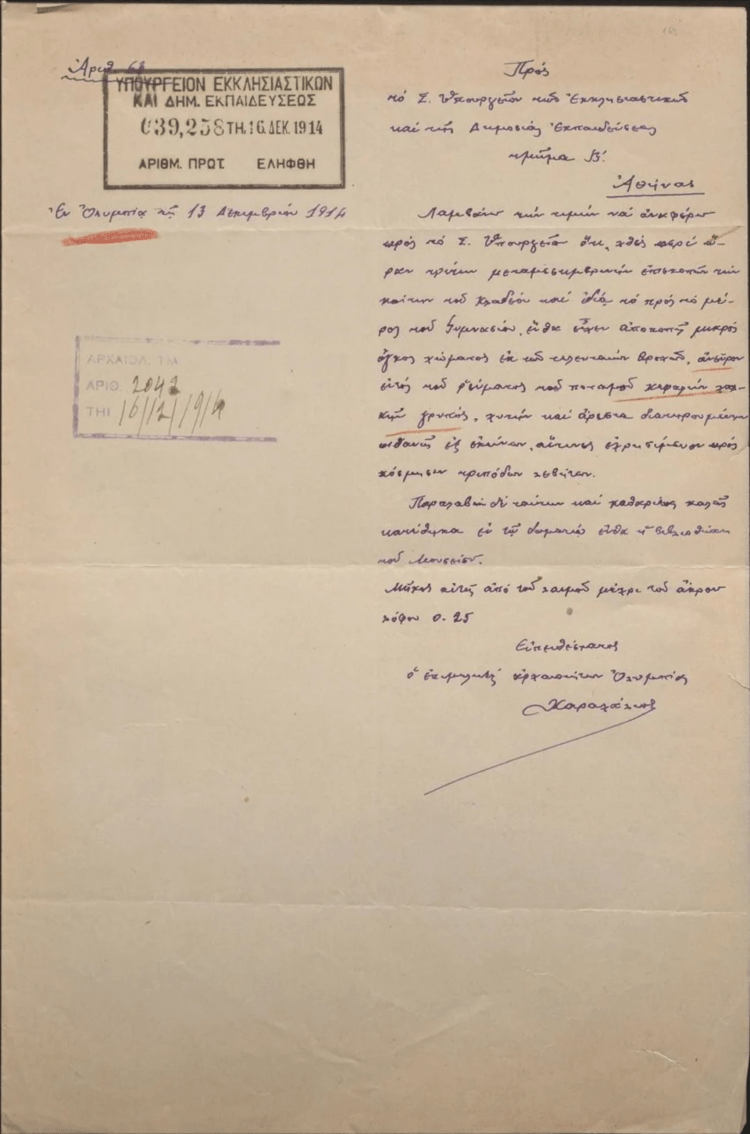 Ἀριθ. 68
ΥΠΟΥΡΓΕΙΟΝ ΕΚΚΛΗΣΙΑΣΤΙΚΩΝ
ΚΑΙ ΔΗΜ. ΕΚΠΑΙΔΕΥΣΕΩΣ
039,258 ΤΗ. 16. ΔΕΚ. 1914
ΑΡΙΘΜ. ΠΡΩΤ. ΕΛΗΦΘΗ
Ἐν Ὀλυμπίᾳ τῇ 13 Δεκεμβρίου 1914
ΑΡΧΑΙΟΛ. ΤΜ
ΑΡΙΘ. 2042
ΤΗΙ 16/12/914
Πρός
τό Σ. Ὑπουργεῖον τῶν Ἐκκλησιαστικῶν
καί τῆς Δημοσίας Ἐκπαιδεύσεως
τμῆμα Β΄.
Ἀθήνας
Λαμβάνω τήν τιμήν νά ἀναφέρω
πρός τό Σ. Ὑπουργεῖον ὅτι, χθές περί ὥ-
ραν τρίτην μεταμεσημβρινήν ἐπισκοπῶν τήν
κοίτην τοῦ Κλαδέου καί ἰδίᾳ τό πρός τό μέ-
ρος τοῦ Γυμνασίου, ἔνθα εἶχεν ἀποκοπῇ μικρός
ὄγκος χώματος ἐκ τῶν τελευταίων βροχῶν, ἀνεῦρον
ἐντός τοῦ ῥεύματος τοῦ ποταμοῦ κεφαλήν χαλ-
κῆν γρυπός, χυτήν καί ἄριστα διατηρουμένην
πιθανῶς ἐξ ἐκείνων, αἵτινες ἐχρησίμευον πρός
κόσμησιν τριπόδων λεβήτων.
Παραλαβών δέ ταύτην καί καθαρίσας καλῶς
κατέθηκα ἐν τῷ δωματίῳ ἔνθα ἡ βιβλιοθήκη
τοῦ Μουσείου.
Μῆκος αὐτῆς ἀπό τοῦ λαιμοῦ μέχρι τοῦ ἄκρου
λόφου 0.25
Εὐπειθέστατος
ὁ ἐπιμελητής ἀρχαιοτήτων Ὀλυμπίας